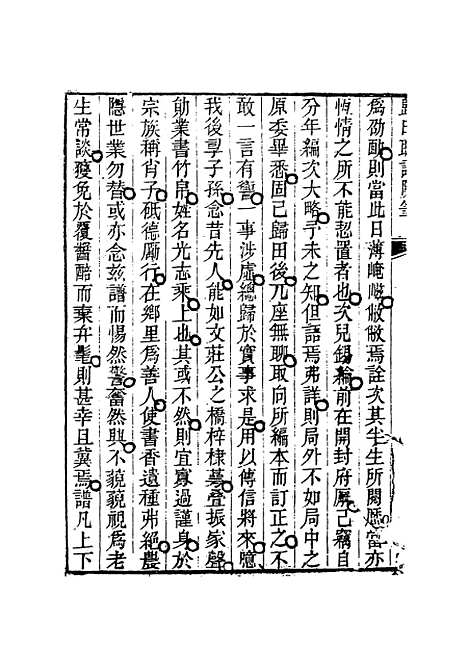 為劭勔則當此日薄崦嵫僘僘焉詮次其半生所閱歷當亦
恆情之所不能恝置者也次兒錫綸前在開封府廨己竊自
分年編次大略予未之知但語焉弗詳則局外不如局中之
原委畢悉固己歸田後兀座無聊取向所編本而訂正之不
敢一言有訾一事涉虛總歸於實事求是用以傳信將來臆
我後學子孫念昔先人能如文莊公之橋梓棣萼疊振家聲
勛業書竹帛姓名光志乘上也其或不然則宜寡過謹身於
宗族稱肖子砥德厲行在鄉里為善人使書香遺種弗絕農
隱世業勿替或亦念茲譜而惕然警奮然興不藐藐視為老
生常談獲免於覆醬醅而棄弁髦則甚幸且冀焉譜凡上下